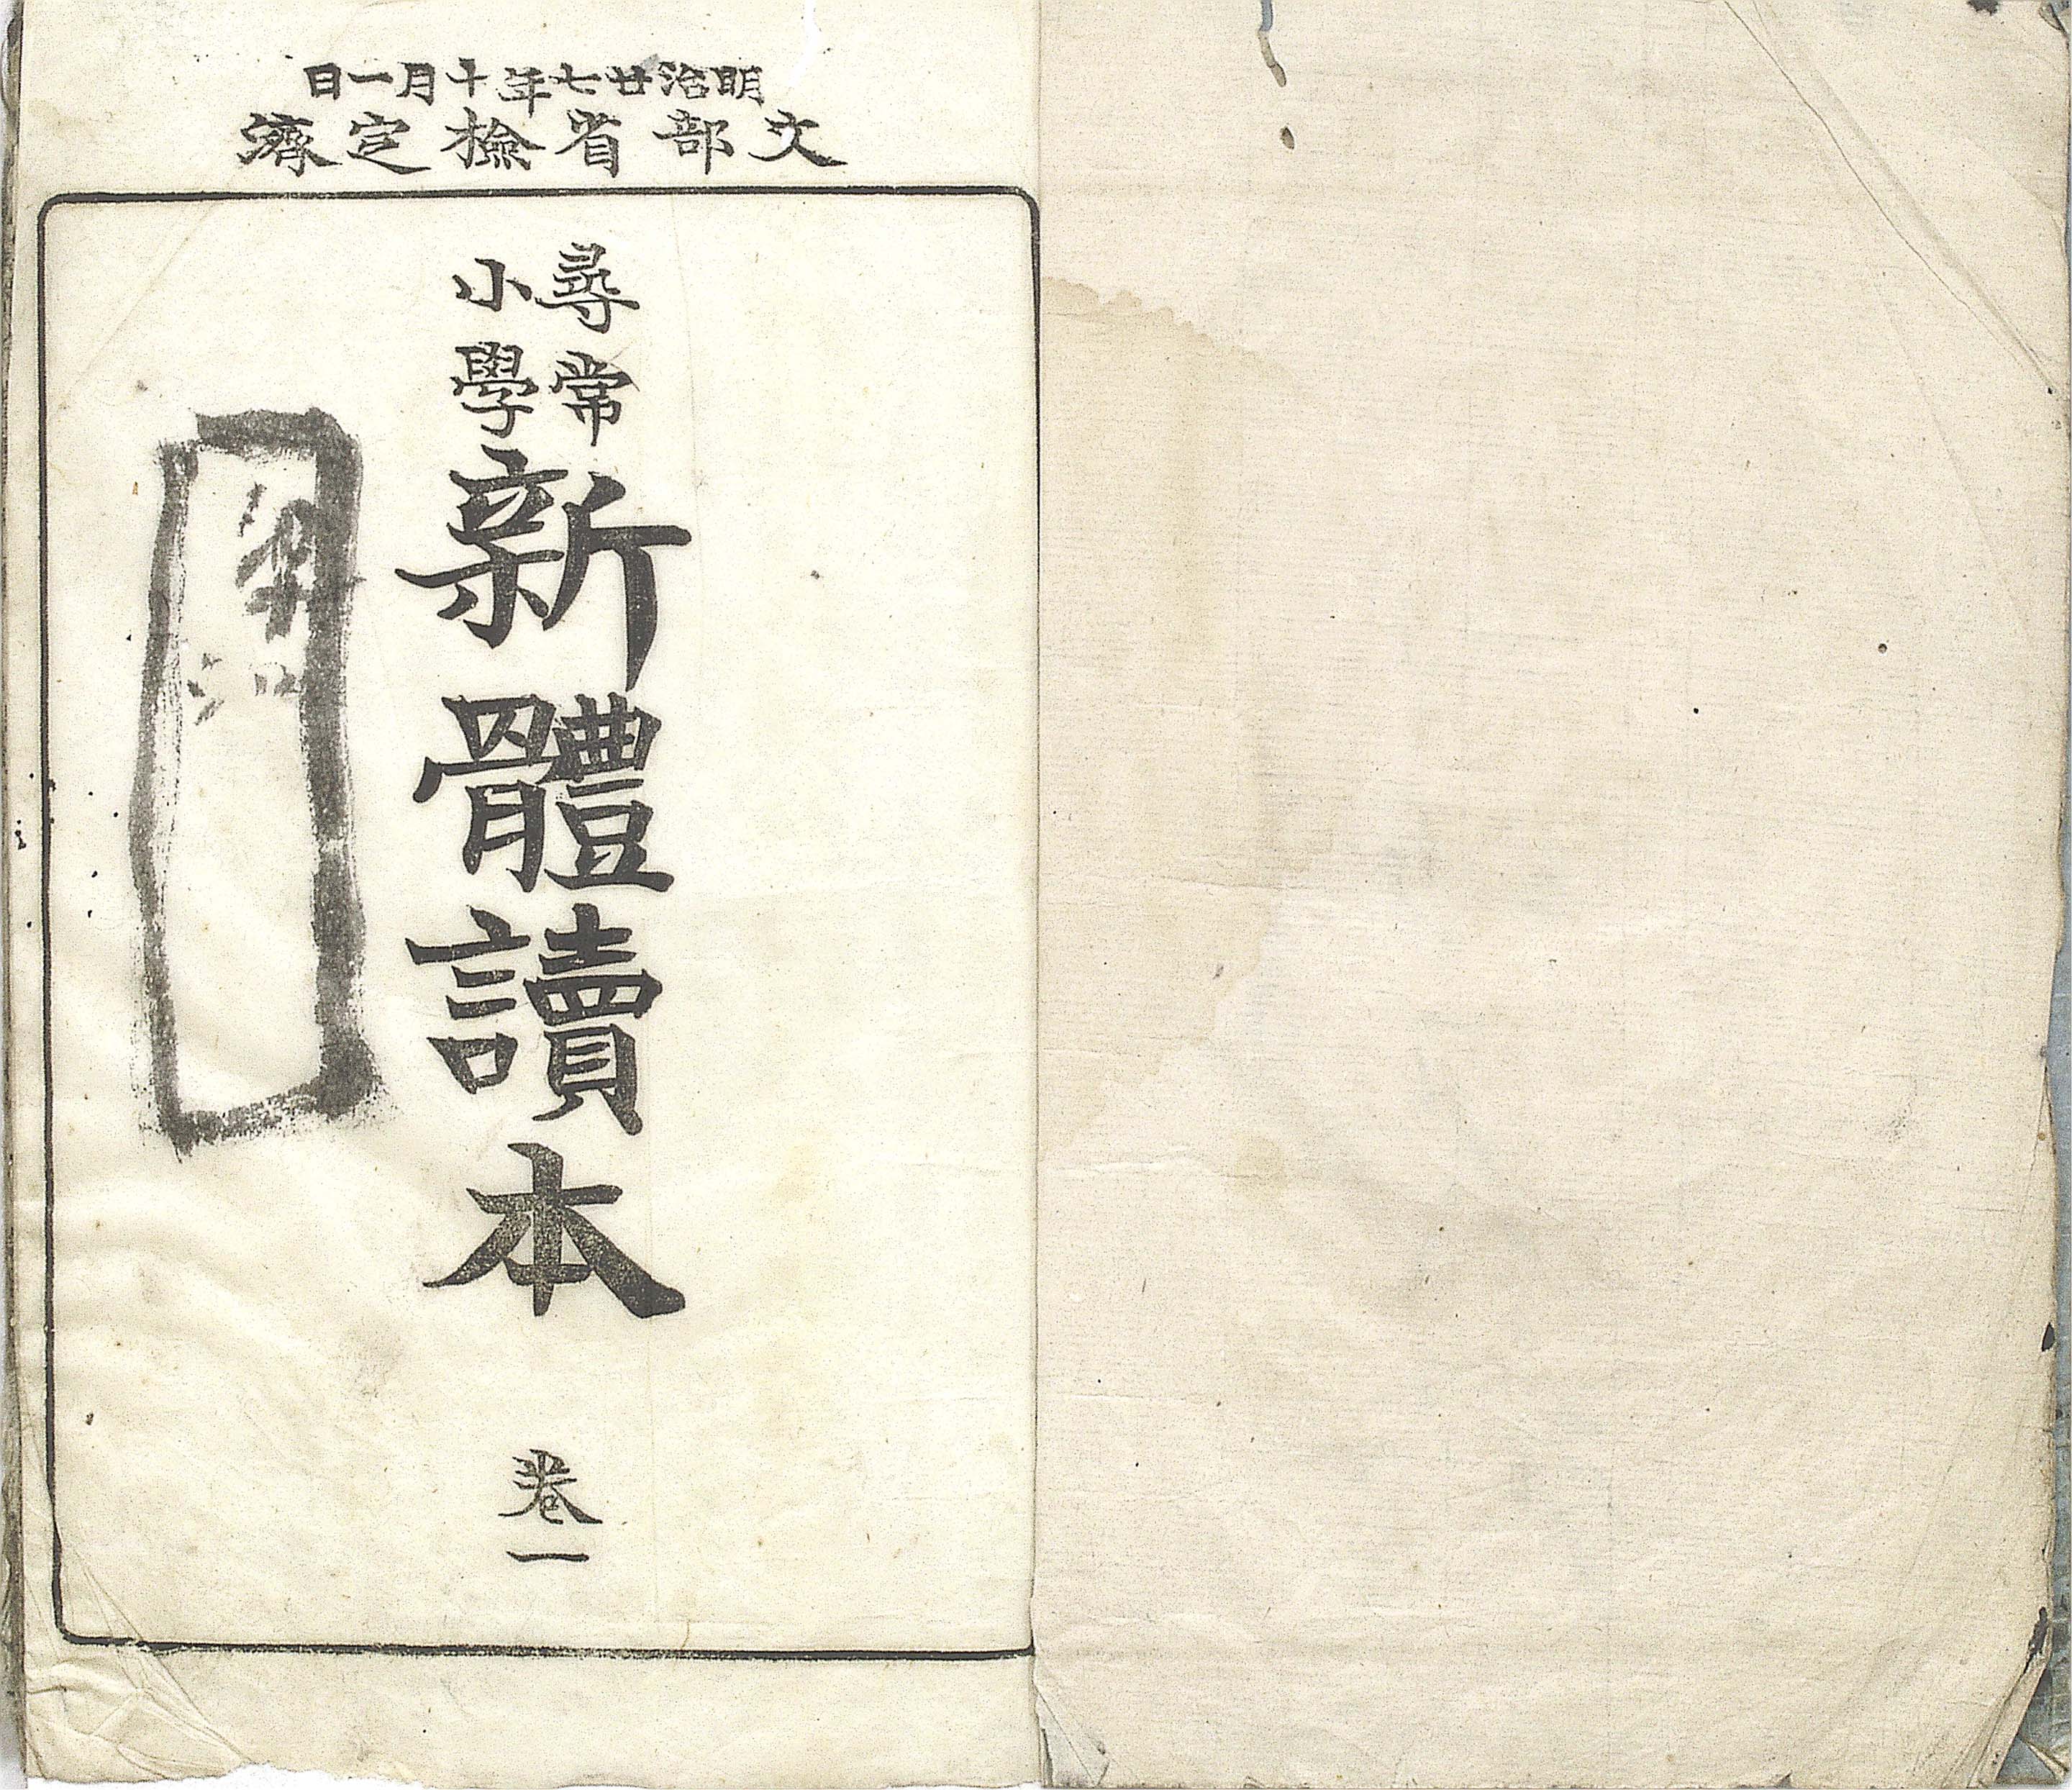 明治廿七年十月一日
文部省檢定濟
尋常
小學
新體讀本
卷一